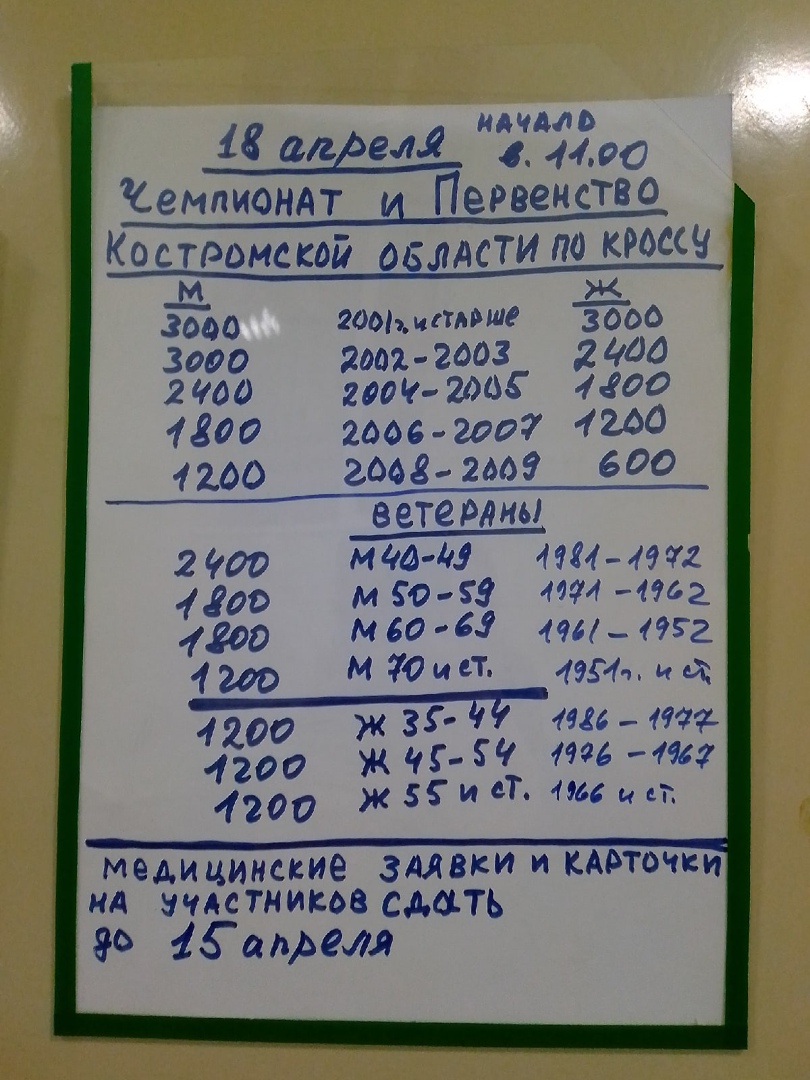 18 апреля НАЧАЛО
в. 11.00
Чемпионат и Первенство
Костромской области по кроссу
М Ж
3000 2001г. и старше 3000
3000 2002-2003 2400
2400 2004-2005 1800
1800 2006-2007 1200
1200 2008-2009 600
ВЕТЕРАНЫ
2400 М 40-49 1981-1972
1800 М 50-59 1971-1962
1800 М 60-69 1961-1952
1200 М 70 и ст. 1951г. и ст.
1200 Ж 35-44 1986-1977
1200 Ж 45-54 1976-1967
1200 Ж 55 и ст. 1966 и ст.
МЕДИЦИНСКИЕ ЗАЯВКИ И КАРТОЧКИ
НА УЧАСТНИКОВ СДАТЬ
до 15 апреля